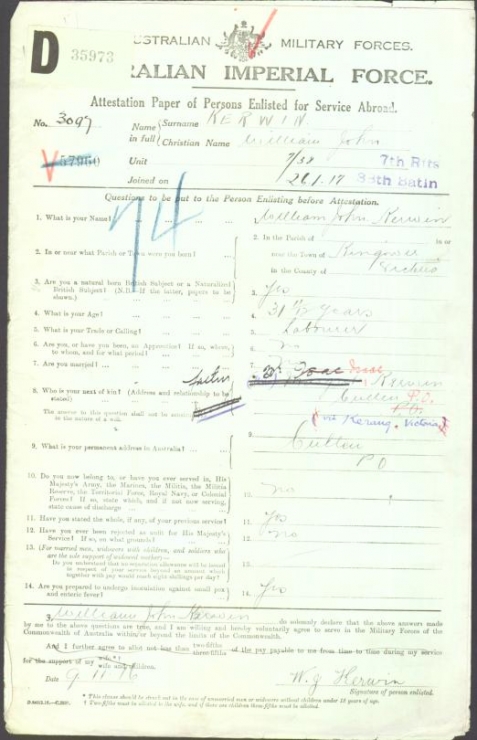 D 35973
AUSTRALIAN MILITARY FORCES.
AUSTRALIAN IMPERIAL FORCE.
Attestation Paper of Persons Enlisted for Service Abroad.
No. 3097
Name in full { Surname KERWIN
Christian Name William John
V 57960
Unit 7/38 7th Rfts
Joined on 26.1.17 38th Batln
74
Questions to be put to the Person Enlisting before Attestation.
1. What is your Name? ... 1. William John Kerwin
2. In or near what Parish or Town were you born? ... 2. In the Parish of in or
near the Town of
in the County of
3. Are you a natural born British Subject or a Naturalized
British Subject? (N.B.—If the latter, papers to be
shown.) 3. Yes
4. What is your Age? ... 4. 31 years
5. What is your Trade or Calling? ... 5. Labourer
6. Are you, or have you been, an Apprentice? If so, where,
to whom, and for what period? ... 6. no
7. Are you married? ... 7.
8. Who is your next of kin? (Address and relationship to be
stated) Kerwin
Cullen P.O.
The answer to this question shall not be
in the nature of a will.
(via Kerang, Victoria)
9. What is your permanent address in Australia? ... 9. Cullen
P O
10. Do you now belong to, or have you ever served in, His
Majesty's Army, the Marines, the Militia, the Militia
Reserve, the Territorial Force, Royal Navy, or Colonial
Forces? If so, state which, and if not now serving,
state cause of discharge ... 10. no
11. Have you stated the whole, if any, of your previous service? 11. Yes
12. Have you ever been rejected as unfit for His Majesty's
Service? If so, on what grounds? 12. no
13. (For married men, widowers with children, and soldiers who
are the sole support of widowed mother)—
Do you understand that no separation allowance will be issued
in respect of your service beyond an amount which
together with pay would reach eight shillings per day? 13.
14. Are you prepared to undergo inoculation against small pox
and enteric fever? 14. Yes
I, William John Kerwin do solemnly declare that the above answers made
by me to the above questions are true, and I am willing and hereby voluntarily agree to serve in the Military Forces of the
Commonwealth of Australia within or beyond the limits of the Commonwealth.
And I further agree to allot not less than two-fifths three-fifths of the pay payable to me from time to time during my service
for the support of my wife* wife and children.†
Date 9 11 16 W. J Kerwin
Signature of person enlisted.
* This clause should be struck out in the case of unmarried men or widowers without children under 18 years of age.
† Two-fifths must be allotted to the wife, and if there are children three-fifths must be allotted.